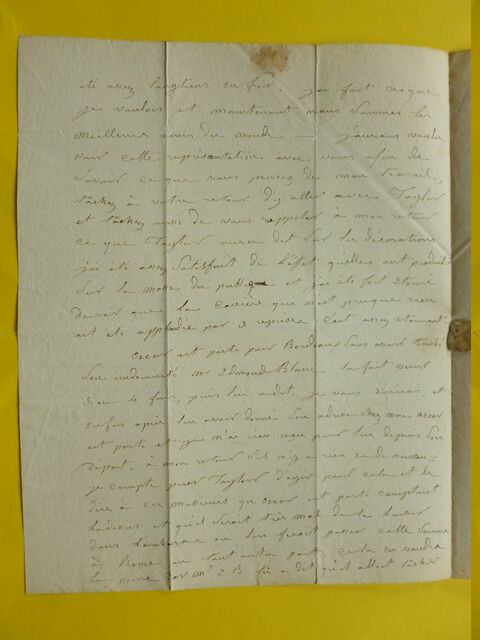 été assez longtems en froid. j'ai fait ce que
je voulois et maintenant nous sommes les
meilleurs amis du monde — j'aurais voulu
voir cette représentation avec vous afin de
savoir ce que vous pensez de mon travail,
tachez à votre retour d'y aller avec Taylor
et tachez aussi de vous rappeler a mon retour
ce que Taylor aura dit sur les décorations
j'ai été assez satisfait de l'effet quelles ont produit
sur la masse du public et j'ai été fort étonné
de voir que la carrière qui n'est presque rien
ait été applaudie par 3 reprises c'est assez étonnant.
oscar est parti pour Bordeaux sans avoir touché
son indemnité Mr Edmond Blanc la fait venir
3 ou 4 fois, puis lui a dit, je vous écrirai et
enfin après lui avoir donné son adresse chez moi oscar
est parti et je n'ai rien reçu pour lui depuis son
départ. à mon retour s'il n'y a rien eu de nouveau
je compte prier Taylor d'agir pour cela et de
dire à ces messieurs qu'oscar est parti comptant
la dessus et qu'il serait très mal de le laisser
dans l'embarras on lui feroit passer cette somme
à Rome ou tout autre part cela en vaudra
la peine car Mr E B lui a dit qu'il allait tacher